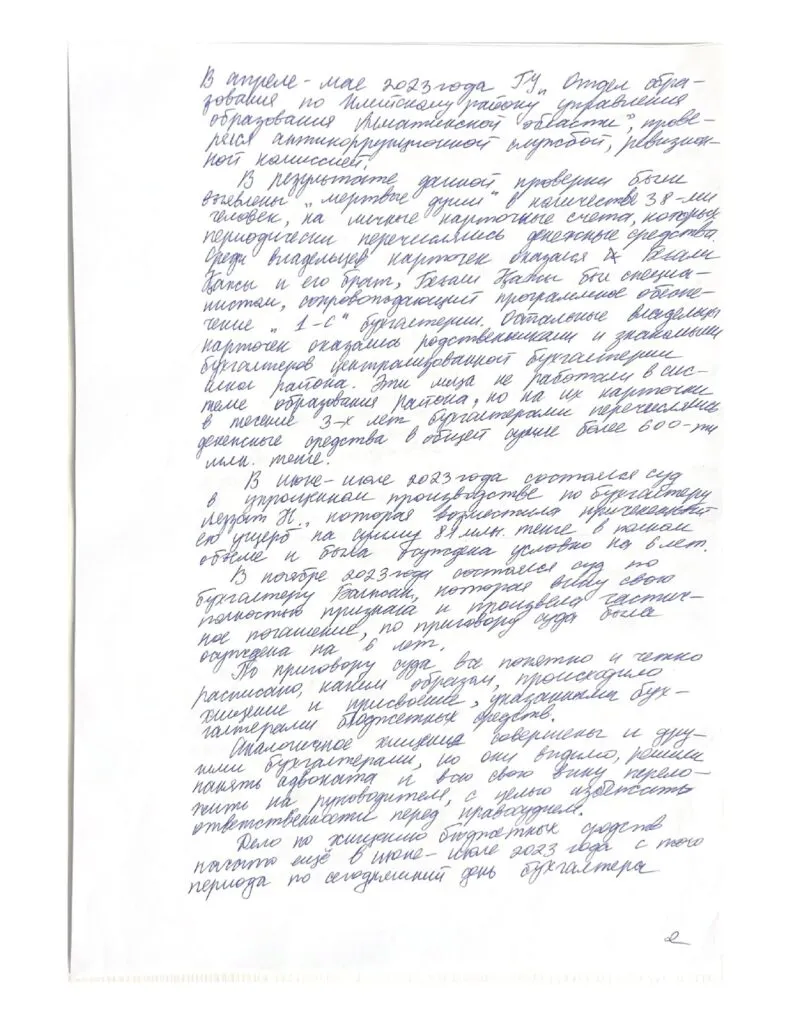 В апреле-мае 2023 года ГУ „Отдел обра-
зования по Илийскому району управления
образования Алматинской области", прове-
рялся антикоррупционной службой, ревизион-
ной комиссией.
В результате данной проверки были
выявлены „мертвые души" в количестве 38-ми
человек, на личные карточные счета, которых
периодически перечислялись денежные средства.
Среди владельцев карточек оказался
и его брат, был специа-
листом, сопровождающий программное обеспе-
чение „1-С" бухгалтерии. Остальные владельцы
карточек оказались родственниками и знакомыми
бухгалтеров централизованной бухгалтерии
района. Эти лица не работали в сис-
теме образования района, но на их карточки
в течение 3-х лет бухгалтерами перечислялись
денежные средства в общей сумме более 600-ти
млн. тенге.
В июне-июле 2023 года состоялся суд
в упрощенном производстве по бухгалтеру
Ляззат Н., которая возместила причененный
ею ущерб на сумму млн. тенге в полном
объеме и была осуждена условно на 6 лет.
В ноябре 2023 года состоялся суд по
бухгалтеру которая вину свою
полностью признала и произвела частич-
ное погашение, по приговору суда была
осуждена на 6 лет.
По приговору суда все понятно и четко
расписано, каким образом, происходило
хищение и присвоение, указанными бух-
галтерами бюджетных средств.
Аналогичное хищение совершены и дру-
гими бухгалтерами, но они видимо, решили
нанять адвоката и всю свою вину перело-
жить на руководителя, с целью избежать
ответственности перед правосудием.
Дело по хищению бюджетных средств
начато ещё в июне-июле 2023 года с того
периода по сегодняшний день бухгалтера
2